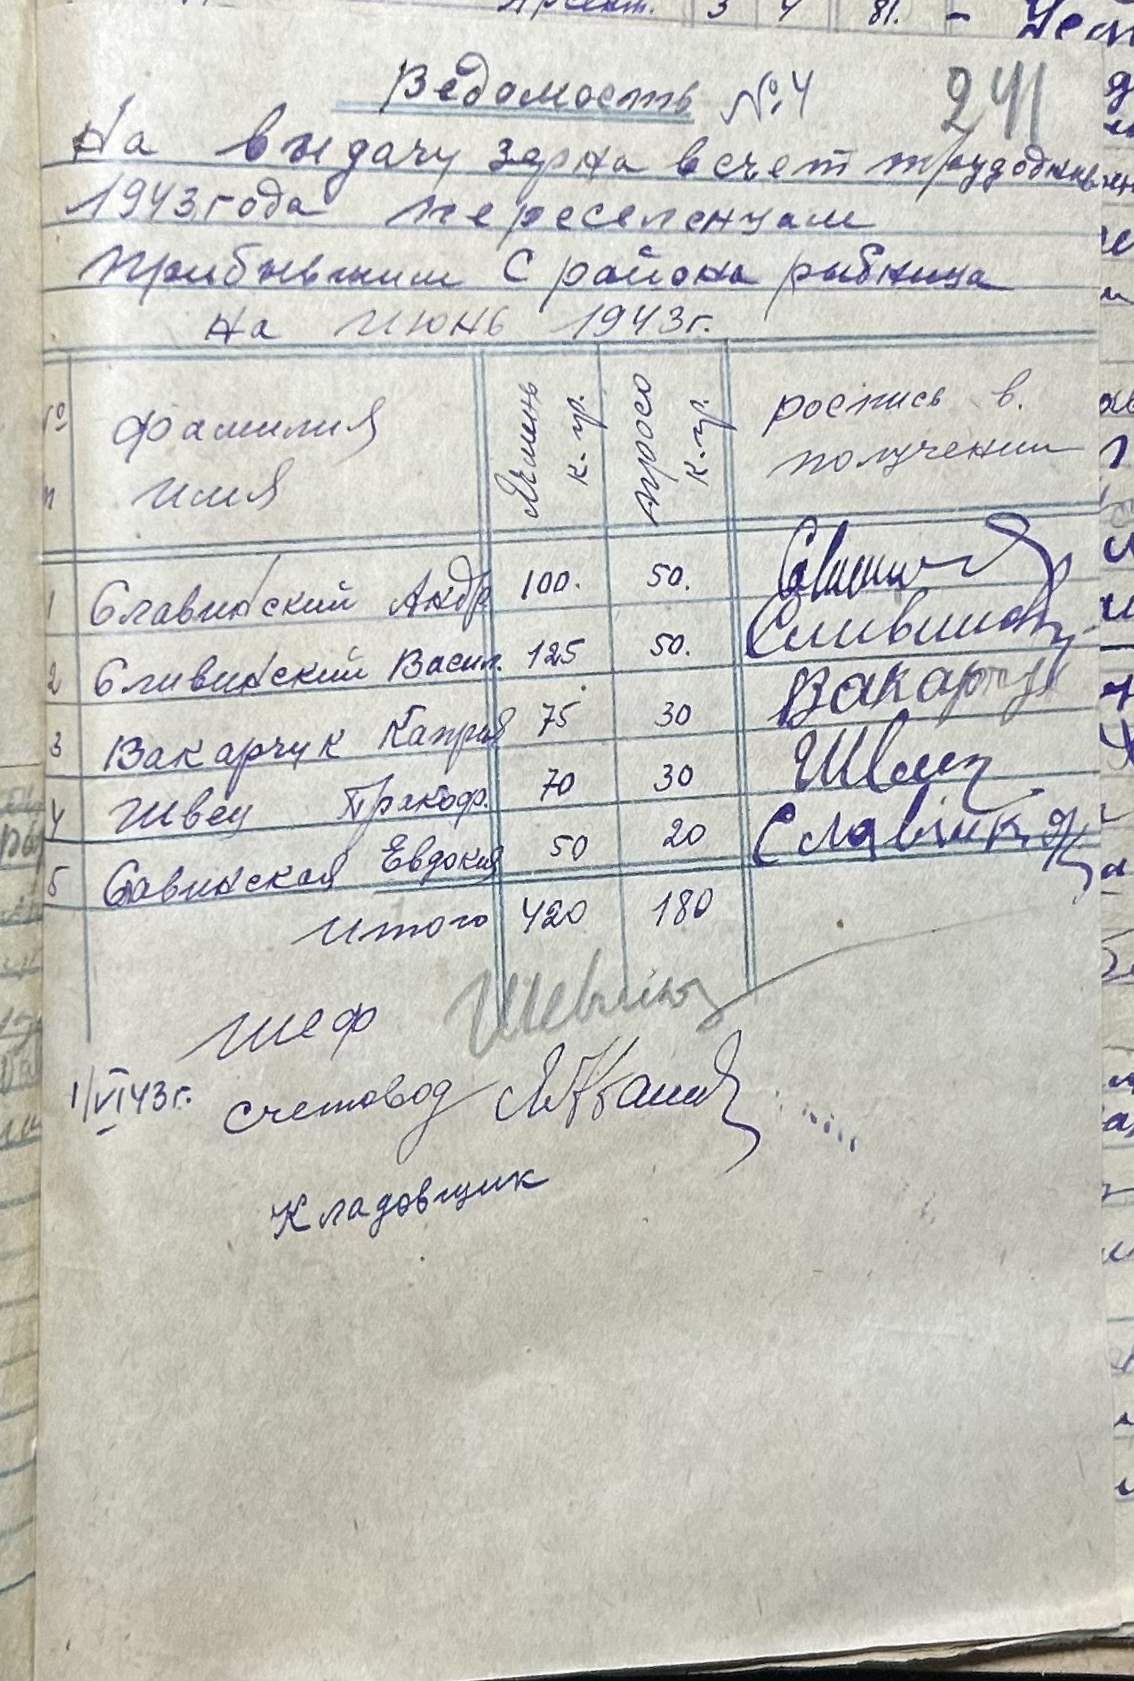 Ведомость №4
241
На выдачу зерна в счет трудодней
1943 года переселенцам
прибывшим с района рыбница
на июнь 1943г.
№ п
фамилия имя
Ячмень к.гр.
просо к.гр.
роспись в получении
1 Славинский Андр 100. 50.
2 Сливинский Васил. 125 50. Сливинск
3 Вакарчук 75 30 Вакарчук
4 Швец Прокоф. 70 30 Швец
5 Савинская Евдокия 50 20 Славинк
итого 420 180
шеф
1/VI 43г. счетовод
Кладовщик